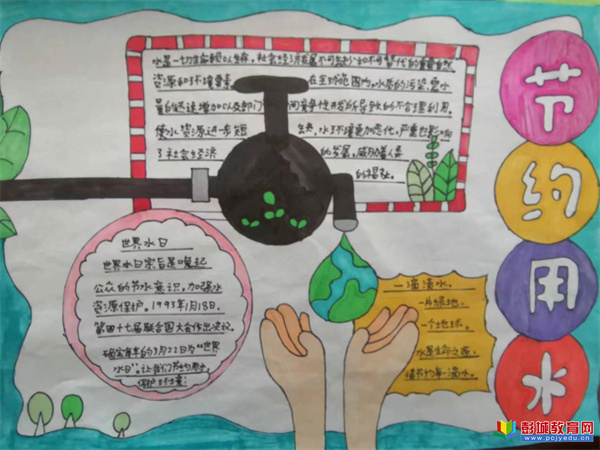 水是一切生命赖以生存，社会经济发展不可缺少和不可替代的重要自然
资源和环境要素 在全球范围内，水质的污染、需水
量的迅速增加以及部门 间竞争性开发所导致的不合理利用，
使水资源进一步短 缺，水环境更加恶化，严重地影响
了社会经济 的发展，威胁着人类
的福祉。
节
约
用
水
世界水日
世界水日宗旨是唤起
公众的节水意识，加强水
资源保护。1993年1月18日，
第四十七届联合国大会作出决议，
确定每年的3月22日为“世界
水日”。让我们节约用水
保护环境！
一滴清水，
一片绿地，
一个地球，
水是生命之源，
请节约每一滴水。
彭城教育网
www.pcjyedu.cn